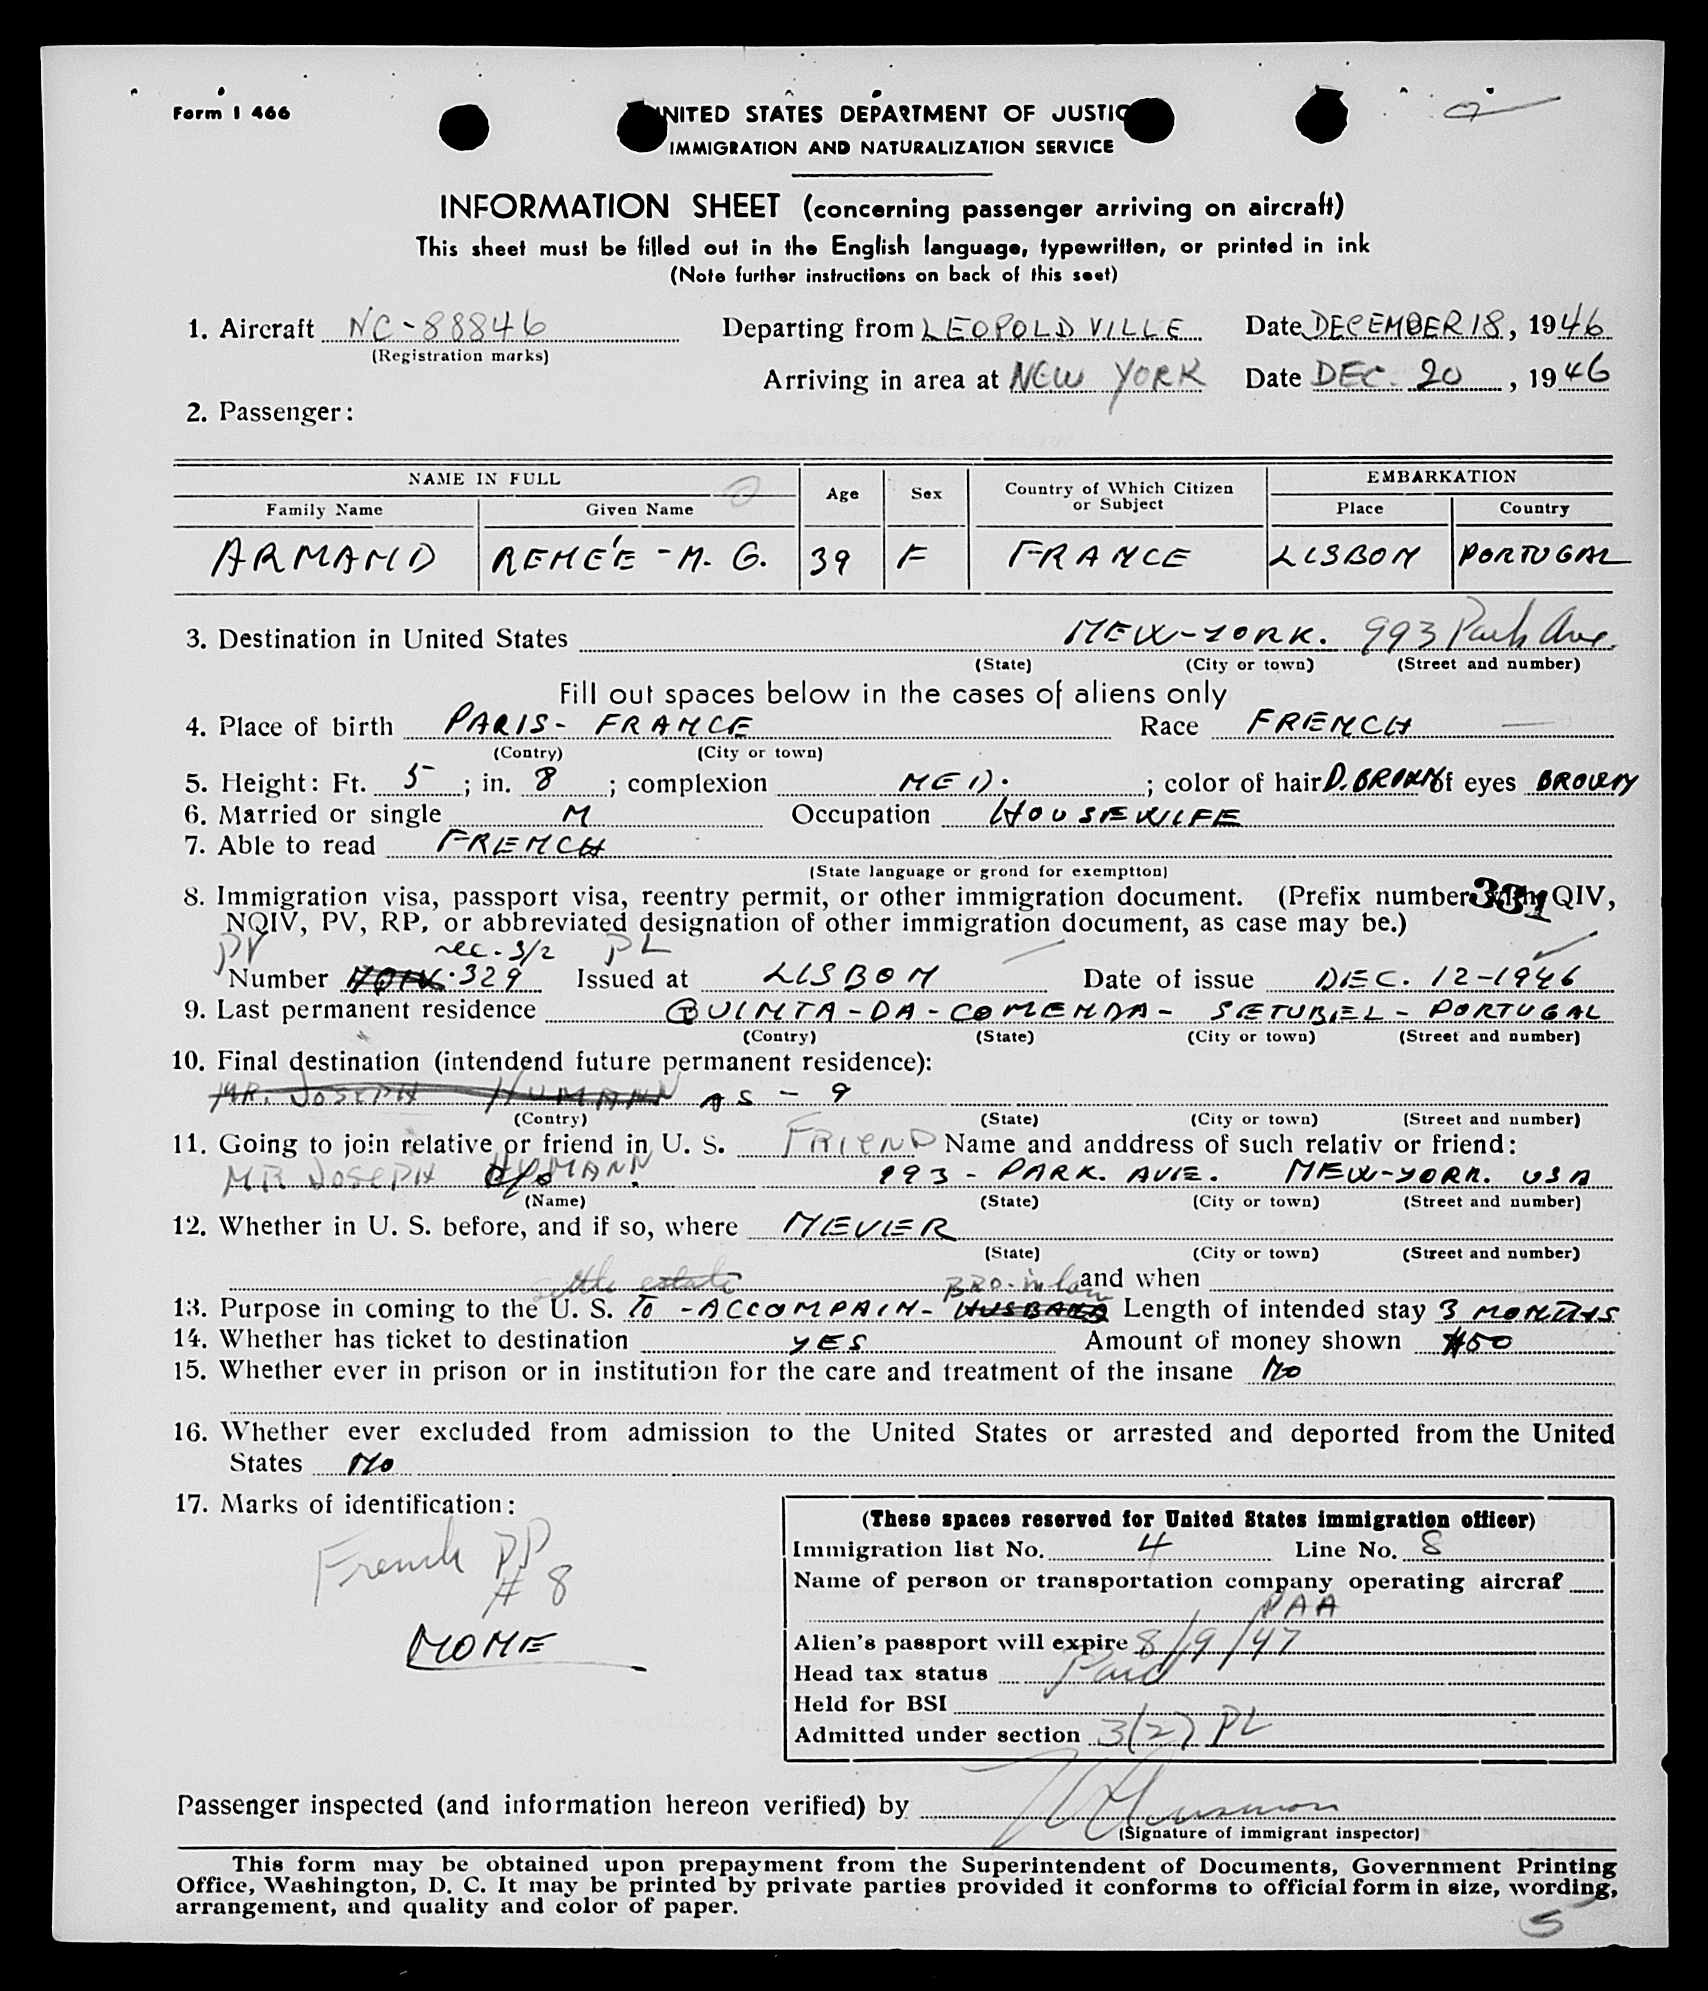 Form I 466
UNITED STATES DEPARTMENT OF JUSTIC
IMMIGRATION AND NATURALIZATION SERVICE
INFORMATION SHEET (concerning passenger arriving on aircraft)
This sheet must be filled out in the English language, typewritten, or printed in ink
(Note further instructions on back of this seet)
1. Aircraft NC-88846 Departing from LEOPOLDVILLE Date DECEMBER 18, 1946
(Registration marks)
Arriving in area at NEW YORK Date DEC. 20, 1946
2. Passenger:
NAME IN FULL Age Sex Country of Which Citizen or Subject EMBARKATION
Family Name Given Name Place Country
ARMAND RENÉE - M. G. 39 F FRANCE LISBON PORTUGAL
3. Destination in United States NEW-YORK. 993 Park Ave.
(State) (City or town) (Street and number)
Fill out spaces below in the cases of aliens only
4. Place of birth PARIS - FRANCE Race FRENCH
(Contry) (City or town)
5. Height: Ft. 5 ; in. 8 ; complexion MED. ; color of hair D. BROWN of eyes BROWN
6. Married or single M Occupation HOUSEWIFE
7. Able to read FRENCH
(State language or grond for exemption)
8. Immigration visa, passport visa, reentry permit, or other immigration document. (Prefix number with QIV, 331
NQIV, PV, RP, or abbreviated designation of other immigration document, as case may be.)
PV sec. 3/2 PL
Number 329 Issued at LISBON Date of issue DEC. 12-1946
9. Last permanent residence QUINTA-DA-COMENDA- SETUBEL- PORTUGAL
(Contry) (State) (City or town) (Street and number)
10. Final destination (intendend future permanent residence):
MR. JOSEPH HUMANN AS - 9
(Contry) (State) (City or town) (Street and number)
11. Going to join relative or friend in U. S. FRIEND Name and anddress of such relativ or friend:
MR JOSEPH HUMANN. c/o 993 - PARK. AVE. NEW-YORK. USA
(Name) (State) (City or town) (Street and number)
12. Whether in U. S. before, and if so, where NEVER
(State) (City or town) (Street and number)
settle estate BRO. in law and when
13. Purpose in coming to the U. S. TO - ACCOMPAIN - HUSBAND Length of intended stay 3 MONTHS
14. Whether has ticket to destination YES Amount of money shown $50
15. Whether ever in prison or in institution for the care and treatment of the insane NO
16. Whether ever excluded from admission to the United States or arrested and deported from the United
States NO
17. Marks of identification:
French PP
# 8
NONE
(These spaces reserved for United States immigration officer)
Immigration list No. 4 Line No. 8
Name of person or transportation company operating aircraf
PAA
Alien's passport will expire 8/9/47
Head tax status Paid
Held for BSI
Admitted under section 3(2) PL
Passenger inspected (and information hereon verified) by
(Signature of immigrant inspector)
This form may be obtained upon prepayment from the Superintendent of Documents, Government Printing
Office, Washington, D. C. It may be printed by private parties provided it conforms to official form in size, wording,
arrangement, and quality and color of paper.
5